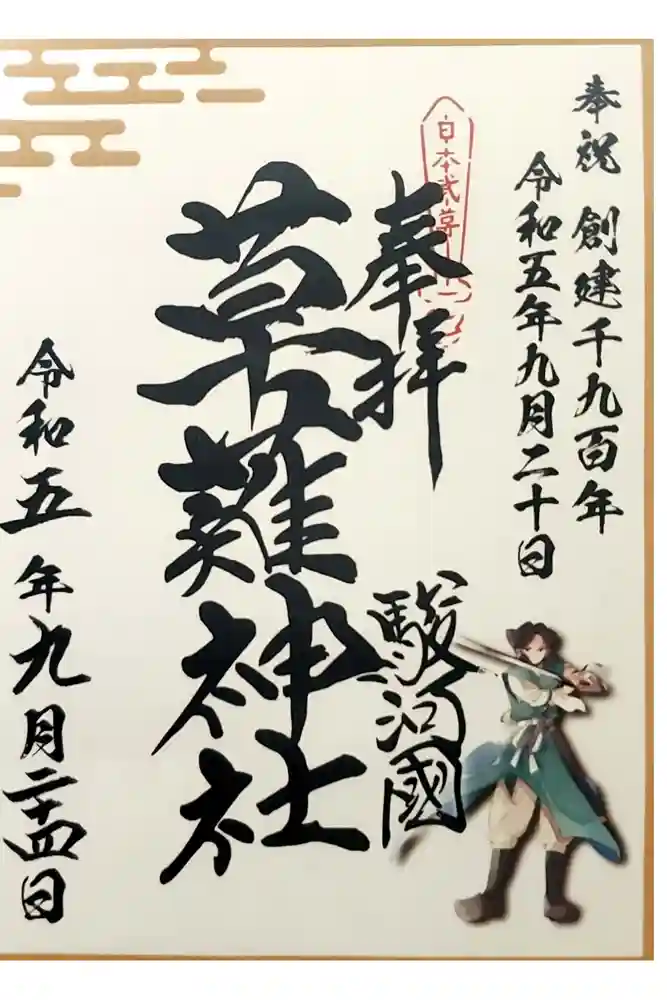 奉祝 創建千九百年
令和五年九月二十日
日本武尊
奉拝
駿河國
草薙神社
令和五年九月二十四日